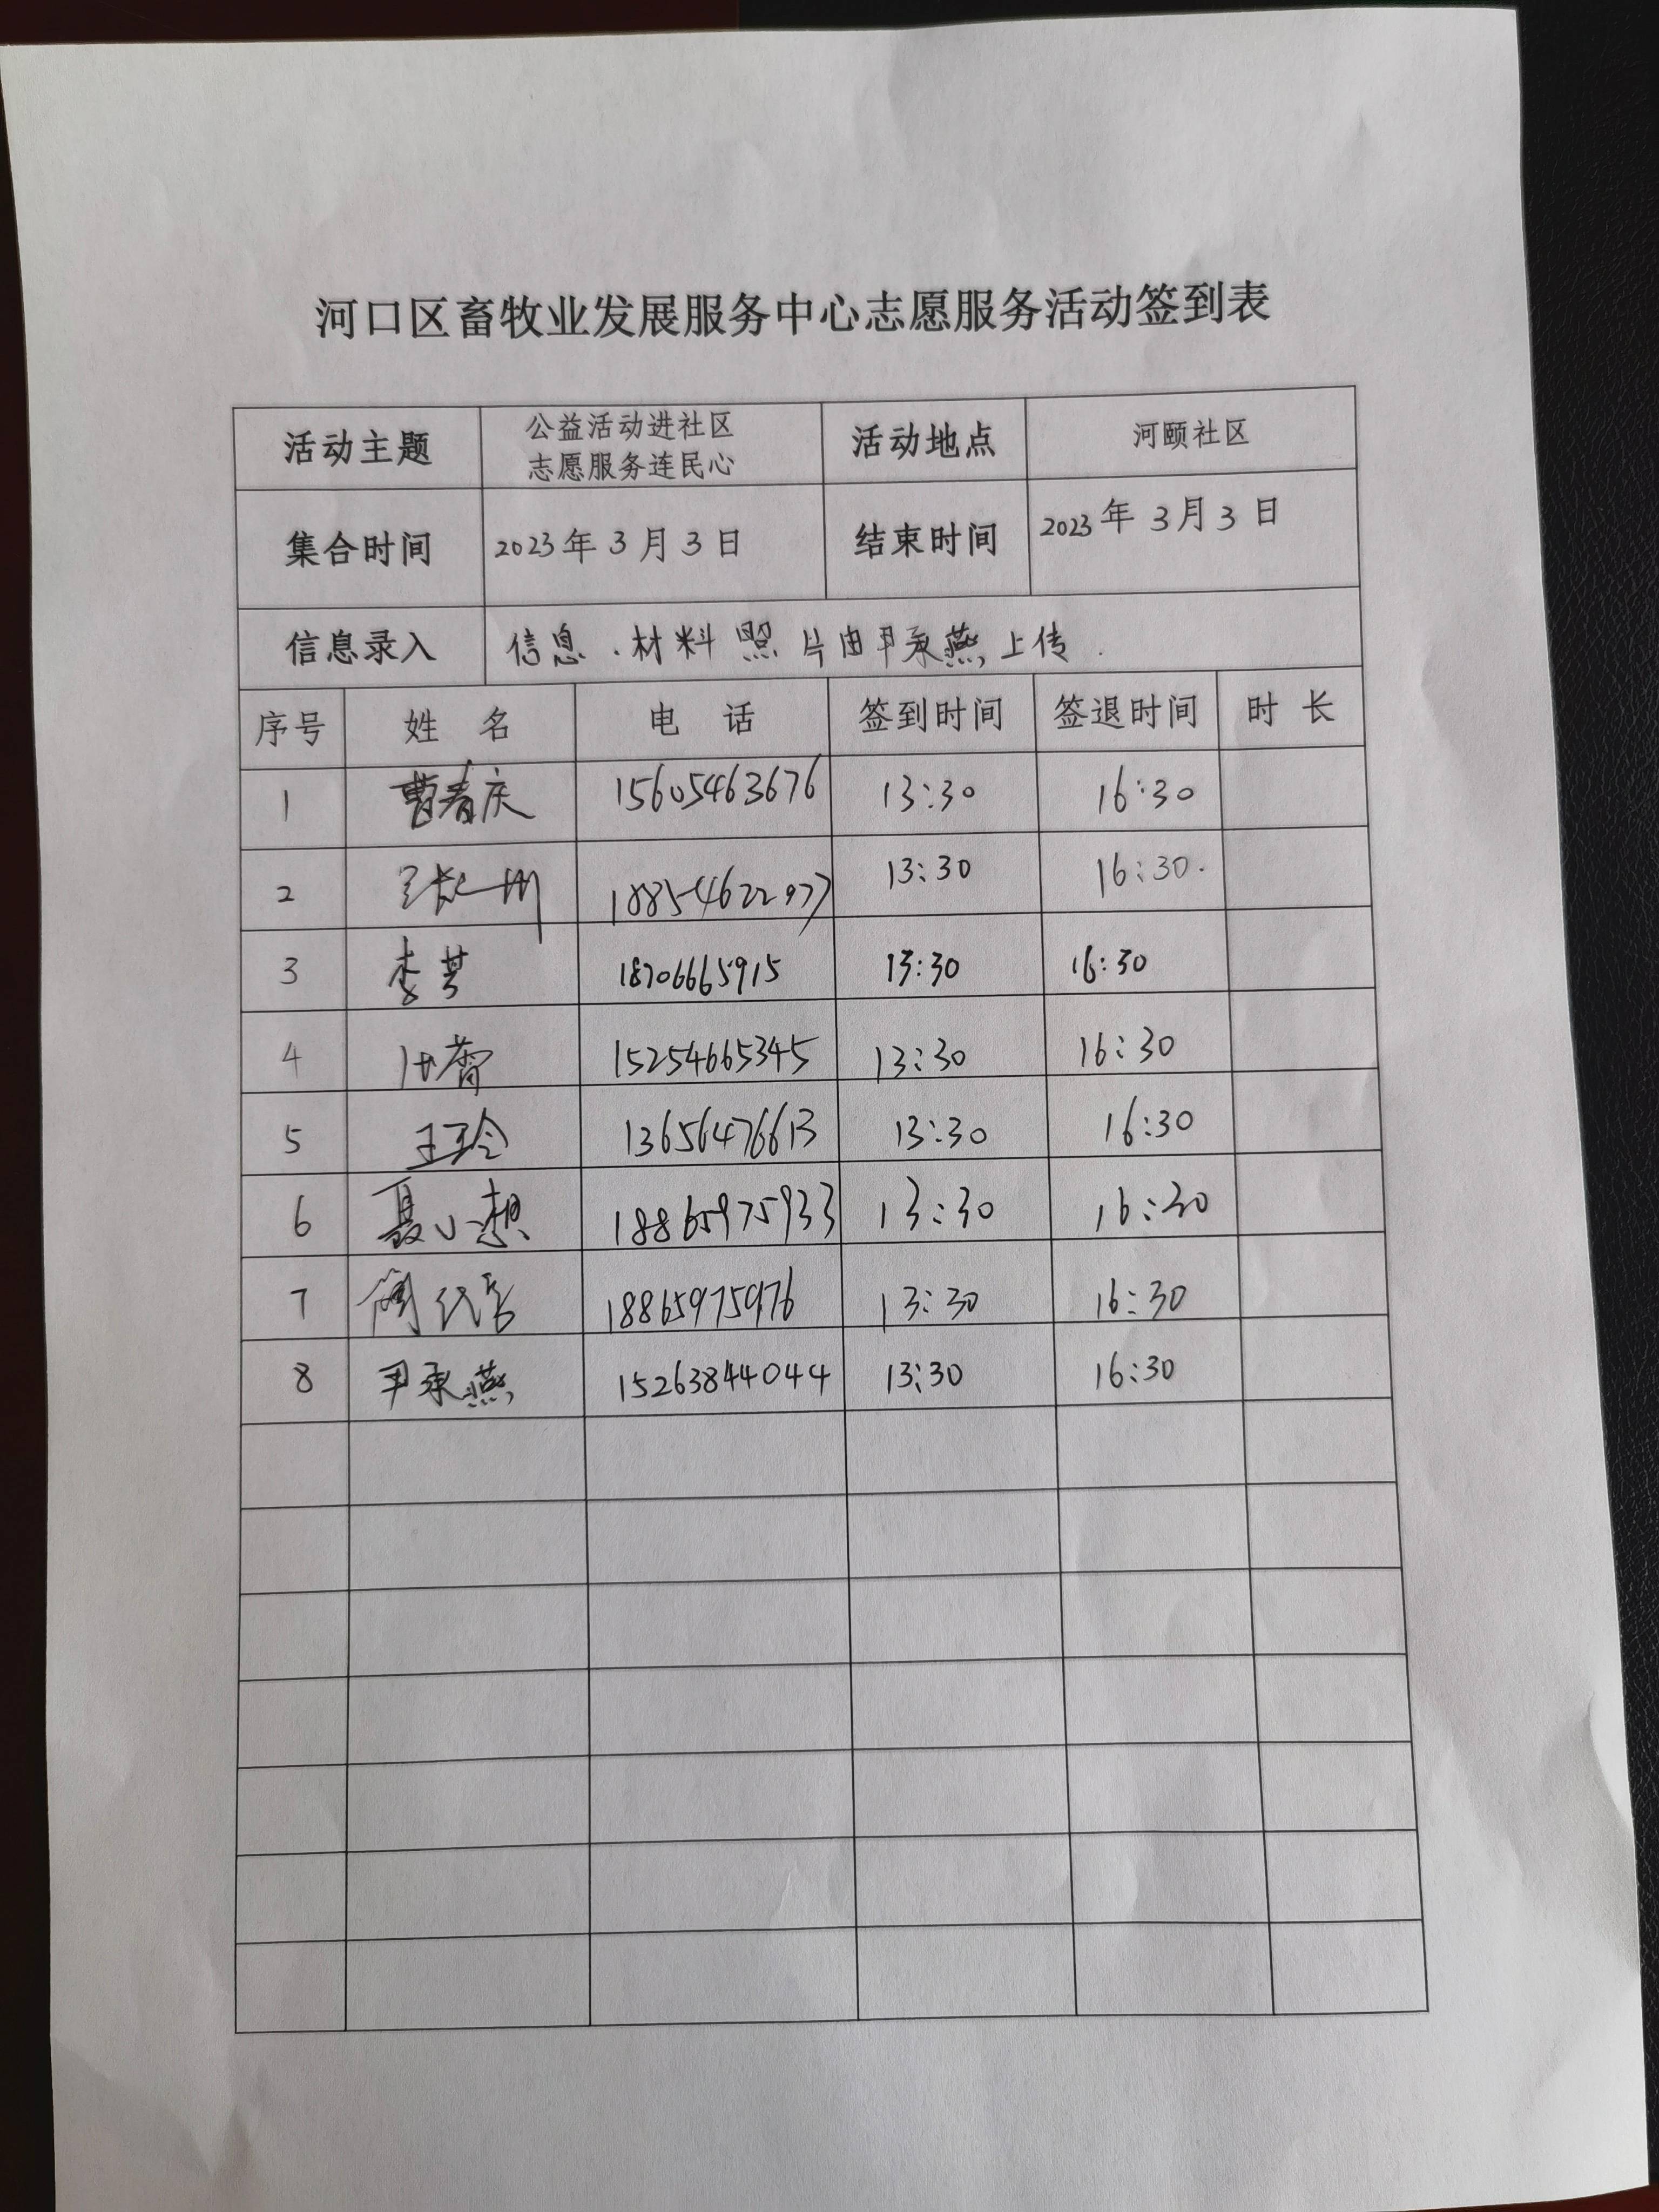 河口区畜牧业发展服务中心志愿服务活动签到表
活动主题 公益活动进社区 活动地点 河颐社区
志愿服务连民心
集合时间 2023年3月3日 结束时间 2023年3月3日
信息录入 信息.材料照片由尹承燕上传.
序号 姓 名 电 话 签到时间 签退时间 时 长
1 曹春庆 15605463676 13:30 16:30
2 13:30 16:30.
3 李 18706665915 13:30 16:30
4 15254665345 13:30 16:30
5 王玲 13656476613 13:30 16:30
6 聂小想 18865975933 13:30 16:30
7 18865975976 13:30 16:30
8 尹承燕 15263844044 13:30 16:30